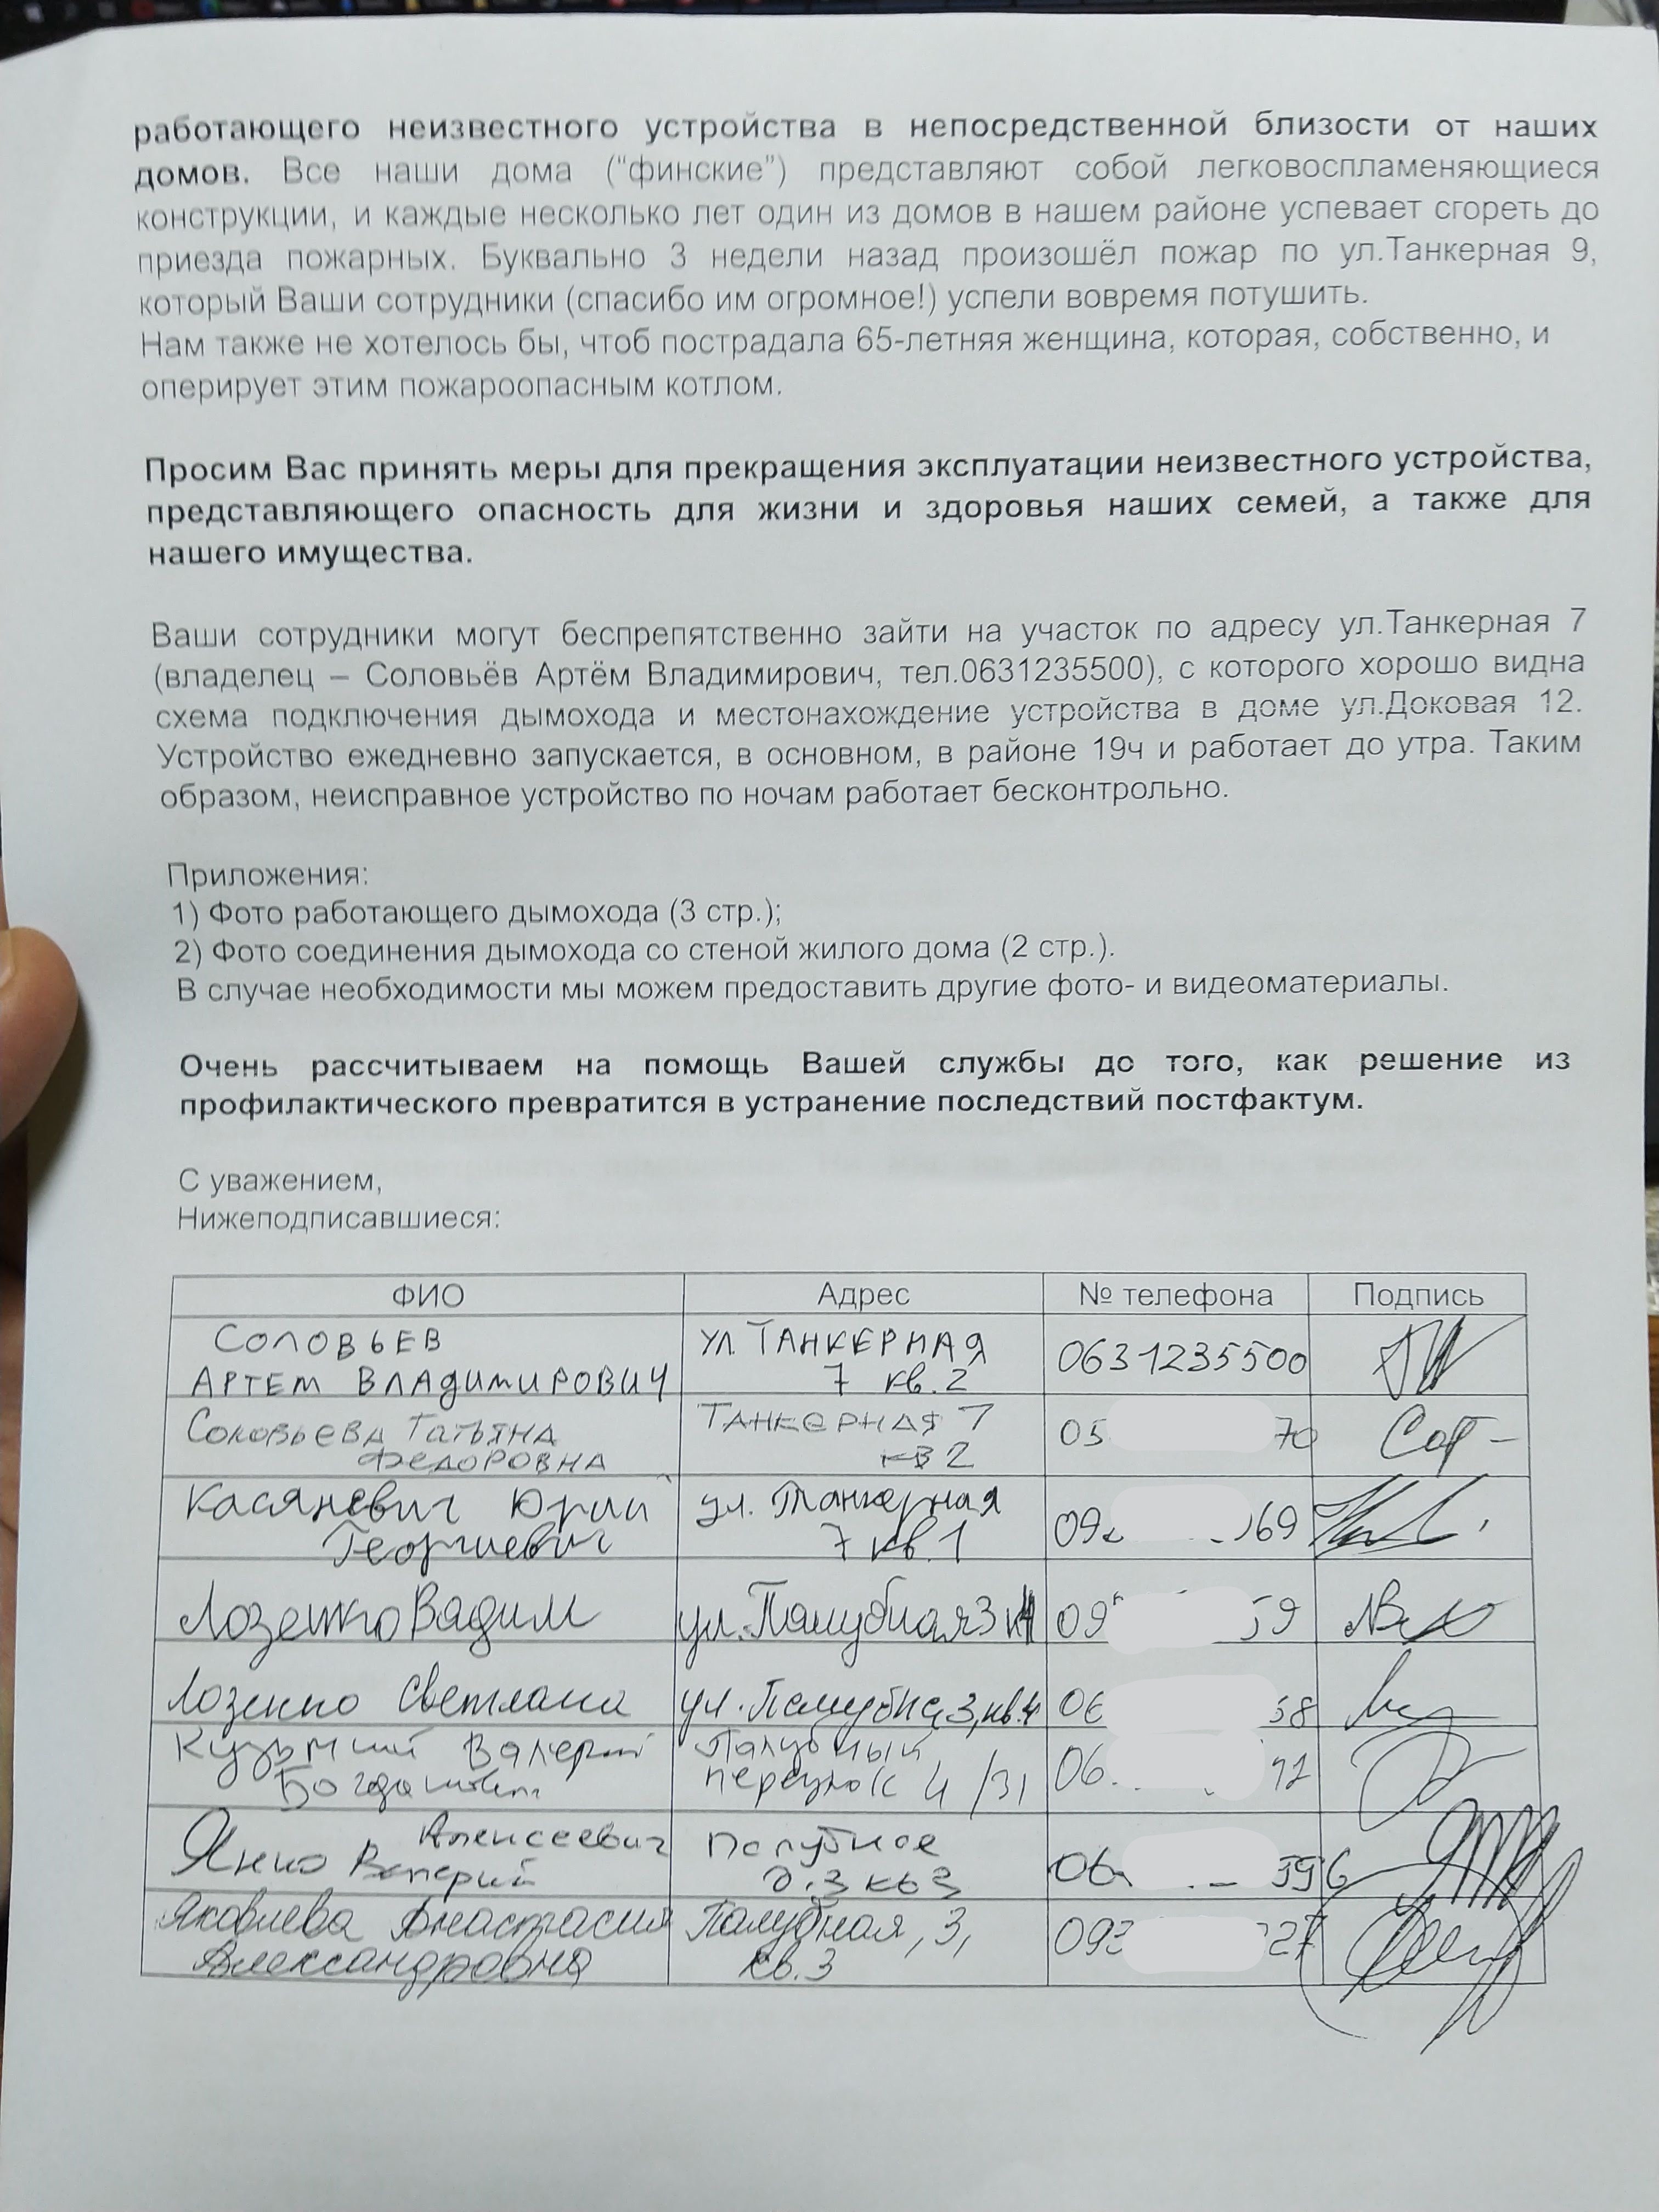 работающего неизвестного устройства в непосредственной близости от наших
домов. Все наши дома (“финские”) представляют собой легковоспламеняющиеся
конструкции, и каждые несколько лет один из домов в нашем районе успевает сгореть до
приезда пожарных. Буквально 3 недели назад произошёл пожар по ул.Танкерная 9,
который Ваши сотрудники (спасибо им огромное!) успели вовремя потушить.
Нам также не хотелось бы, чтоб пострадала 65-летняя женщина, которая, собственно, и
оперирует этим пожароопасным котлом.
Просим Вас принять меры для прекращения эксплуатации неизвестного устройства,
представляющего опасность для жизни и здоровья наших семей, а также для
нашего имущества.
Ваши сотрудники могут беспрепятственно зайти на участок по адресу ул.Танкерная 7
(владелец – Соловьёв Артём Владимирович, тел.0631235500), с которого хорошо видна
схема подключения дымохода и местонахождение устройства в доме ул.Доковая 12.
Устройство ежедневно запускается, в основном, в районе 19ч и работает до утра. Таким
образом, неисправное устройство по ночам работает бесконтрольно.
Приложения:
1) Фото работающего дымохода (3 стр.);
2) Фото соединения дымохода со стеной жилого дома (2 стр.).
В случае необходимости мы можем предоставить другие фото- и видеоматериалы.
Очень рассчитываем на помощь Вашей службы до того, как решение из
профилактического превратится в устранение последствий постфактум.
С уважением,
Нижеподписавшиеся:
ФИО Адрес № телефона Подпись
СОЛОВЬЕВ УЛ. ТАНКЕРНАЯ 0631235500
АРТЕМ ВЛАДИМИРОВИЧ 7 кв.2
Соловьева Татьяна Танкерная 7 05 70
Федоровна кв 2
Касяневич Юрий ул. Танкерная 092 69
Георгиевич 7 кв.1
Лозенко Вадим ул. Палубная 3 09 59
Лозенко Светлана ул. Палубна, 3, кв.4 06 58
Кузьмий Валерий Палубный 06 92
переулок 4/31
Алексеевич Палубная 06 396
Янко Валерий д.3 кв 3
Яковлева Анастасия Палубная, 3, 093 227
Александровна кв.3